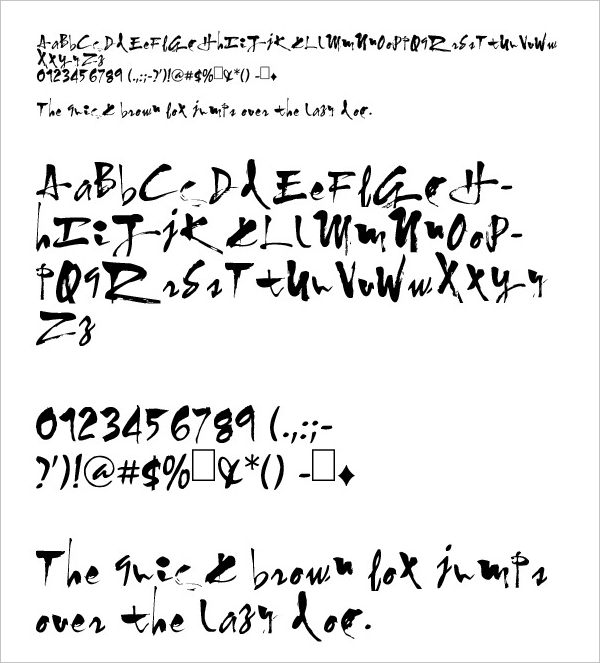 AaBbCcDdEeFfGgHhIiJjKkLlMmNnOoPpQqRrSsTtUuVvWw
XxYyZz
0123456789 (.,:;-?')!@#$%□&*() -□♦
The quick brown fox jumps over the lazy dog.
AaBbCcDdEeFfGgH-
hIiJjKkLlMmNnOoP-
pQqRrSsTtUuVvWwXxYy
Zz
0123456789 (.,:;-
?')!@#$%□&*() -□♦
The quick brown fox jumps
over the lazy dog.